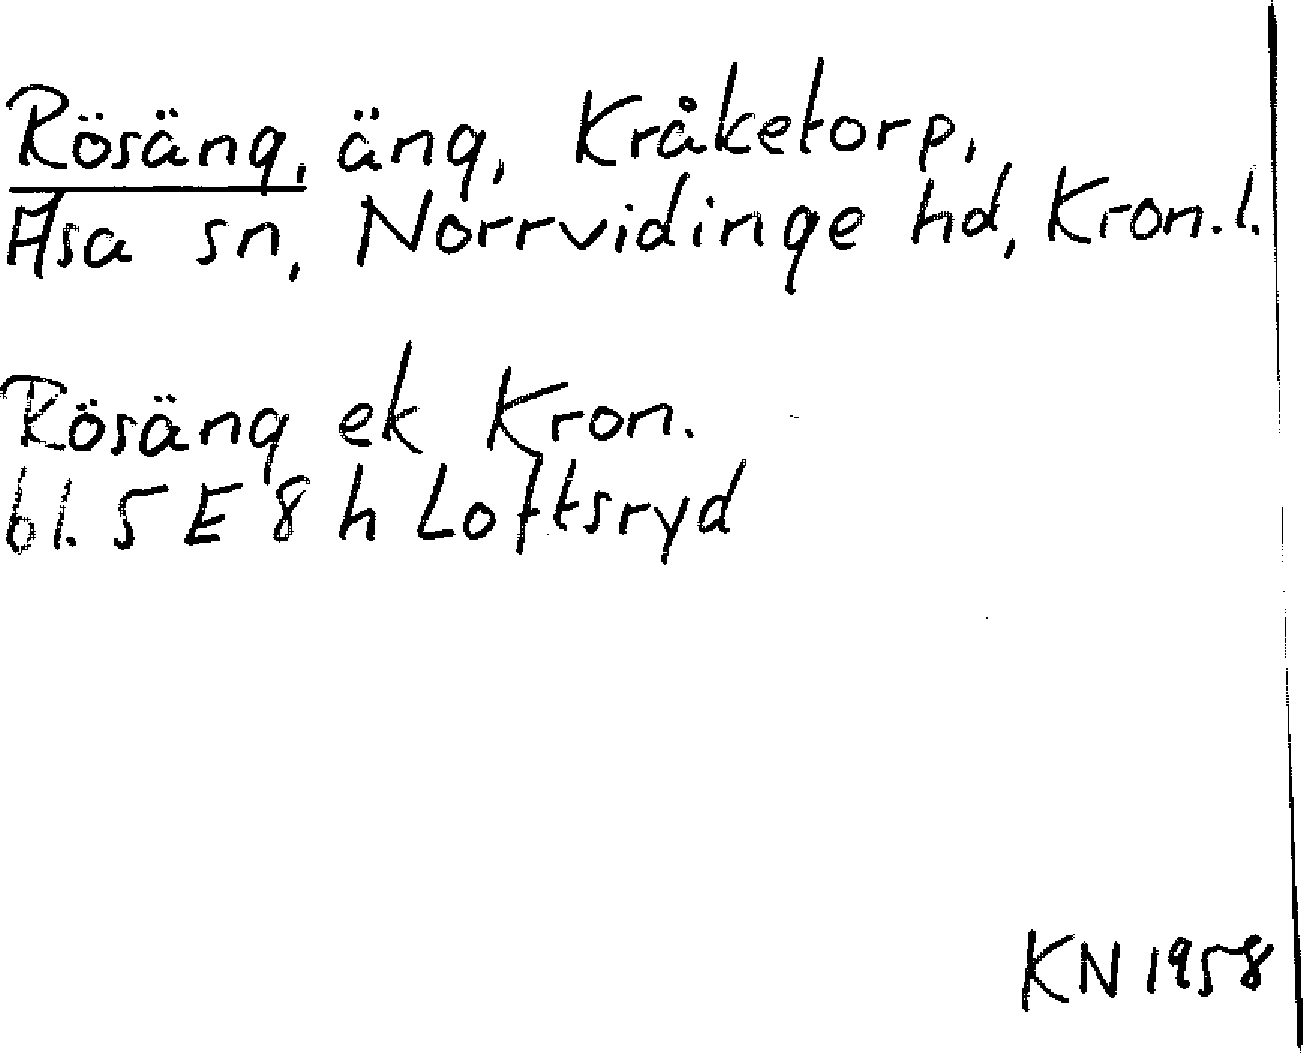 Rösäng, äng, Kråketorp,
Asa sn, Norrvidinge hd, Kron.l.
Rösäng ek Kron.
bl. 5 E 8 h Loftsryd
KN 1958